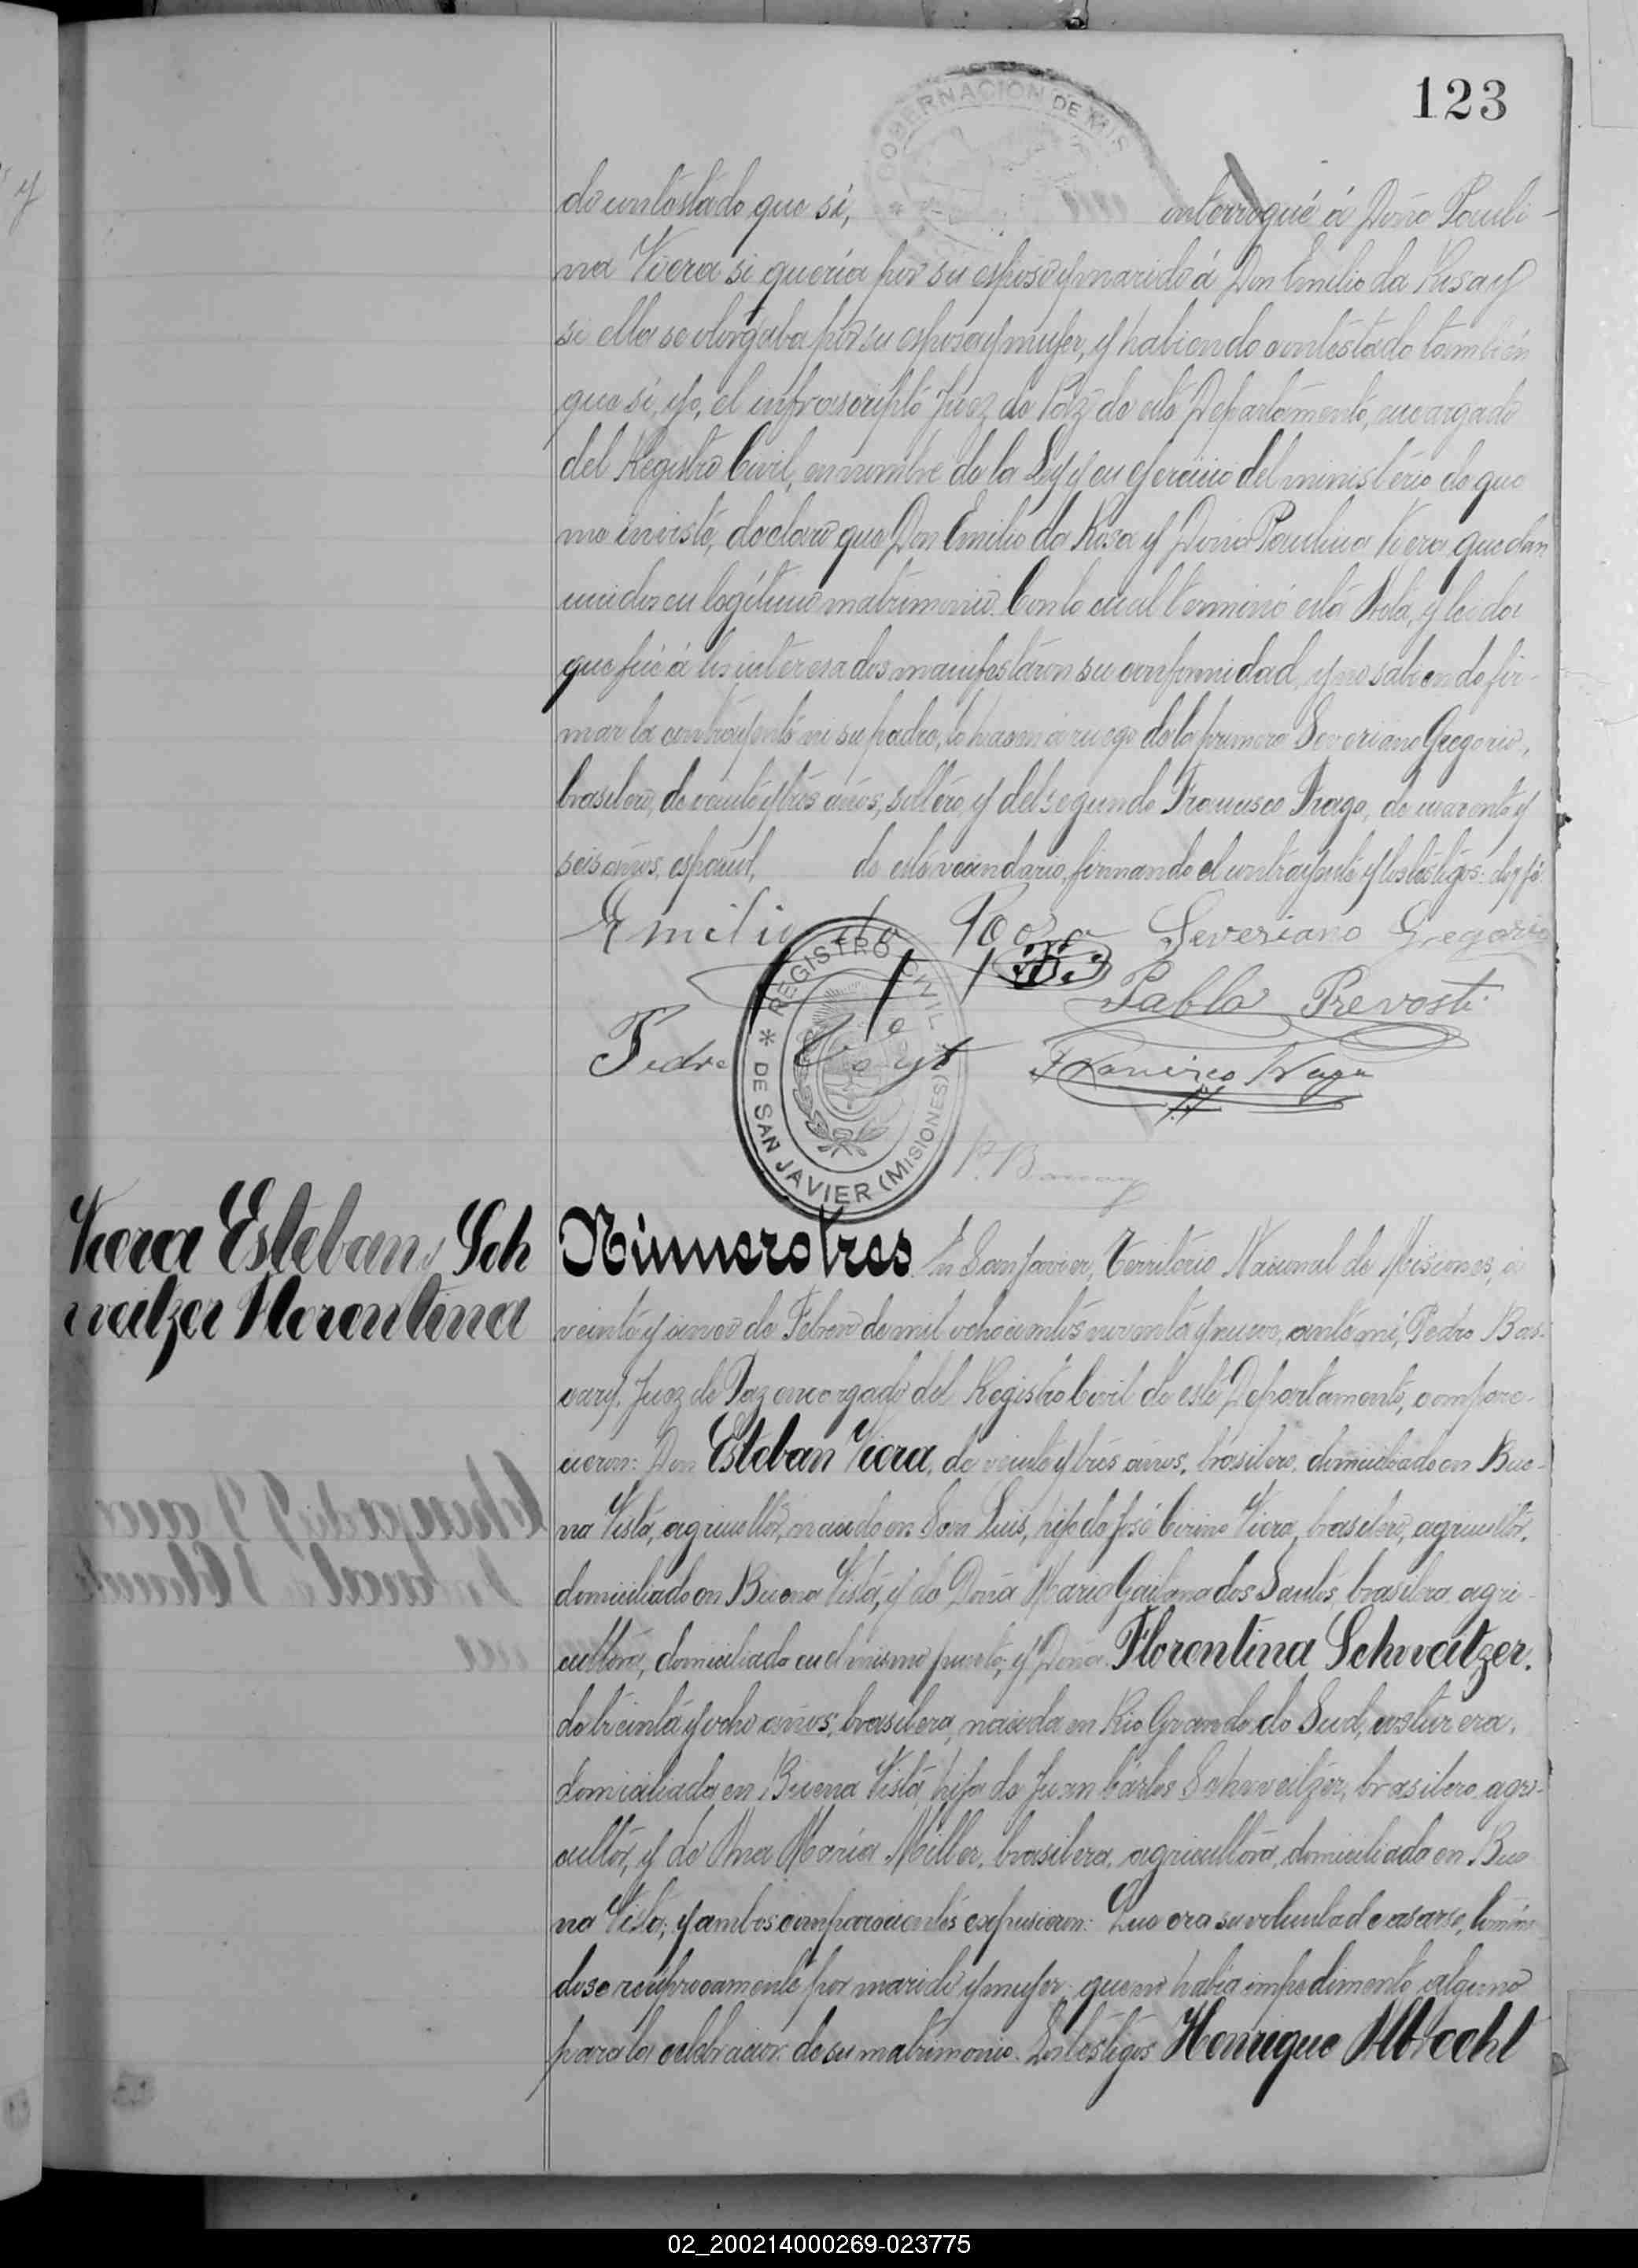 123
GOBERNACION DE MIS
do contestado que sí, interrogué á Doña Pauli-
na Viera si quería por su esposo y marido á Don Emilio da Rosa y
si ella se otorgaba por su esposa y mujer, y habiendo contestado también
que sí, yo, el infrascripto Juez de Paz de este Departamento, encargado
del Registro Civil, en nombre de la Ley y en ejercicio del ministerio de que
me invisto, declaro que Don Emilio da Rosa y Doña Paulina Viera quedan
unidos en legítimo matrimonio. Con lo cual terminó esta Acta, y leida
que fué á los interesados manifestáron su conformidad, y no sabiendo fir-
mar la contrayente ni su padre, lo hacen á ruego de la primera Severiano Gregorio,
brasilero, de veinte y tres años, soltero, y del segundo Francisco Fraga, de cuarenta y
seis años, español, de este vecindario, firmando el contrayente y los testigos: doy fé.
Emilio da Roza Severiano Gregorio
Pablo Prevosti
Pedro Francisco Fraga
REGISTRO CIVIL
DE SAN JAVIER (MISIONES)
Viera Esteban y Sch
weitzer Florentina
Número tres. En San Javier, Territorio Nacional de Misiones, á
veinte y cinco de Febrero de mil ochocientos noventa y nueve, ante mí, Pedro Bas-
vary, Juez de Paz encargado del Registro Civil de este Departamento, compare-
cieron: Don Esteban Viera, de veinte y tres años, brasilero, domiciliado en Bue-
na Vista, agricultor, nacido en San Luis, hijo de José Cirino Viera, brasilero, agricultor,
domiciliado en Buena Vista, y de Doña Maria Gaitana dos Santos, brasilera, agri-
cultora, domiciliada en el mismo punto, y Doña Florentina Schweitzer,
de treinta y ocho años, brasilera, nacida en Rio Grande do Sud, costurera,
domiciliada en Buena Vista, hija de Juan Cárlos Schweitzer, brasilero, agri-
cultor, y de Ana María Miller, brasilera, agricultora, domiciliada en Bue
na Vista; y ambos comparecientes expusieron: Que era su voluntad casarse, tomán
dose recíprocamente por marido y mujer; que no había impedimento alguno
para la celebracion de su matrimonio. Los testigos Henrique Albrecht
02_200214000269-023775